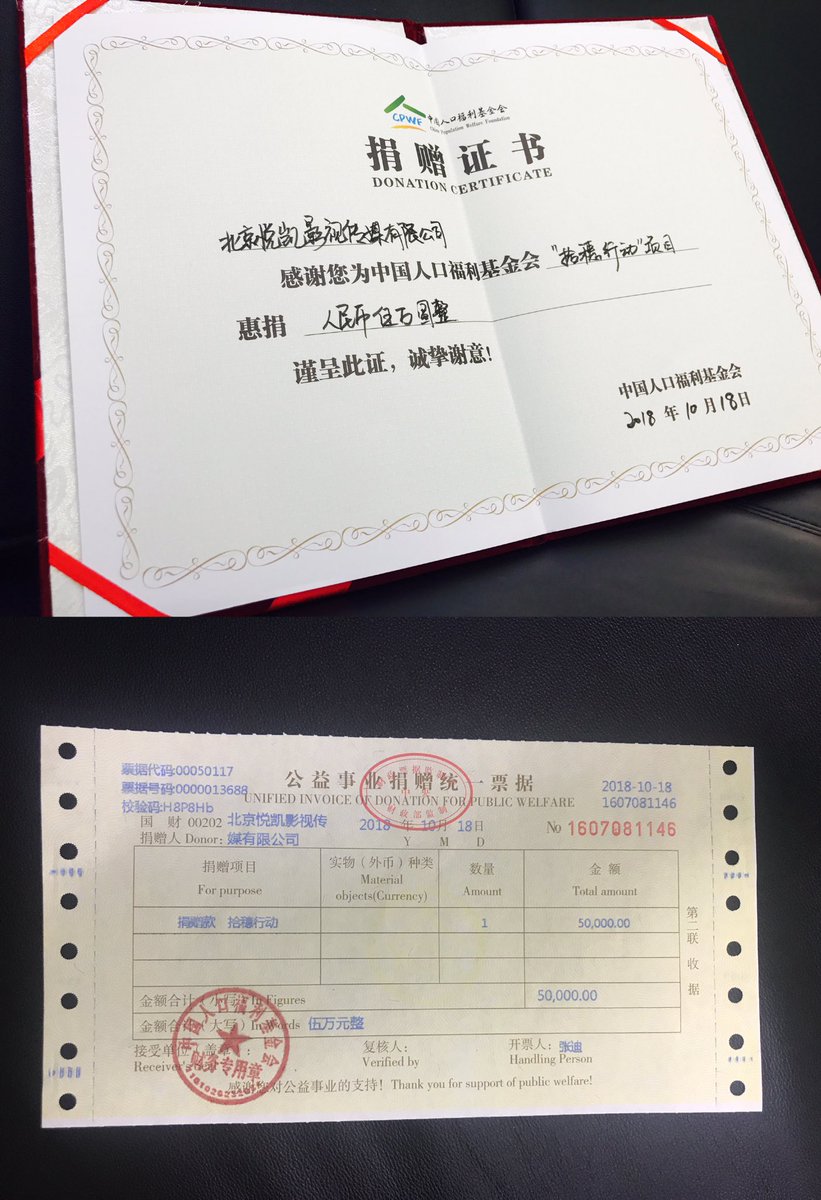 CPWF 中国人口福利基金会
China Population Welfare Foundation
捐赠证书
DONATION CERTIFICATE
北京悦凯影视传媒有限公司
感谢您为中国人口福利基金会 "拾穗行动"项目
惠捐 人民币伍万圆整
谨呈此证，诚挚谢意！
中国人口福利基金会
2018 年 10 月 18 日
票据代码:00050117
公益事业捐赠统一票据
2018-10-18
票据号码:0000013688
UNIFIED INVOICE OF DONATION FOR PUBLIC WELFARE
1607081146
校验码:H8P8Hb
国 财 00202
北京悦凯影视传
2018 年 10月 18日
No 1607081146
捐赠人 Donor: 媒有限公司
Y M D
捐赠项目 实物（外币）种类 数量 金 额
For purpose Material objects(Currency) Amount Total amount
捐赠款 拾穗行动 1 50,000.00
金额合计（小写）In Figures 50,000.00
金额合计（大写）In Words 伍万元整
接受单位（盖章）： 复核人： 开票人：张迪
Receiver's Verified by Handling Person
感谢您对公益事业的支持！Thank you for support of public welfare!
第二联 收据
中国人口福利基金会
财务专用章
财政部监制